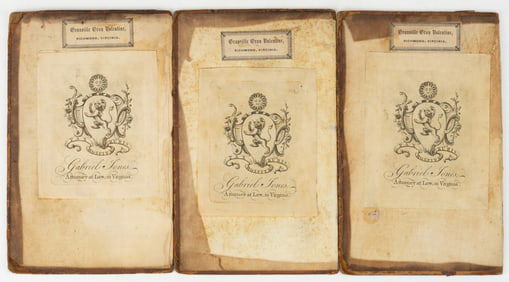 Granville Gray Valentine,
RICHMOND, VIRGINIA.
Gabriel Jones
Attorney at Law, in Virginia.
Granville Gray Valentine,
RICHMOND, VIRGINIA.
Gabriel Jones
Attorney at Law, in Virginia.
Granville Gray Valentine,
RICHMOND, VIRGINIA.
Gabriel Jones
Attorney at Law, in Virginia.